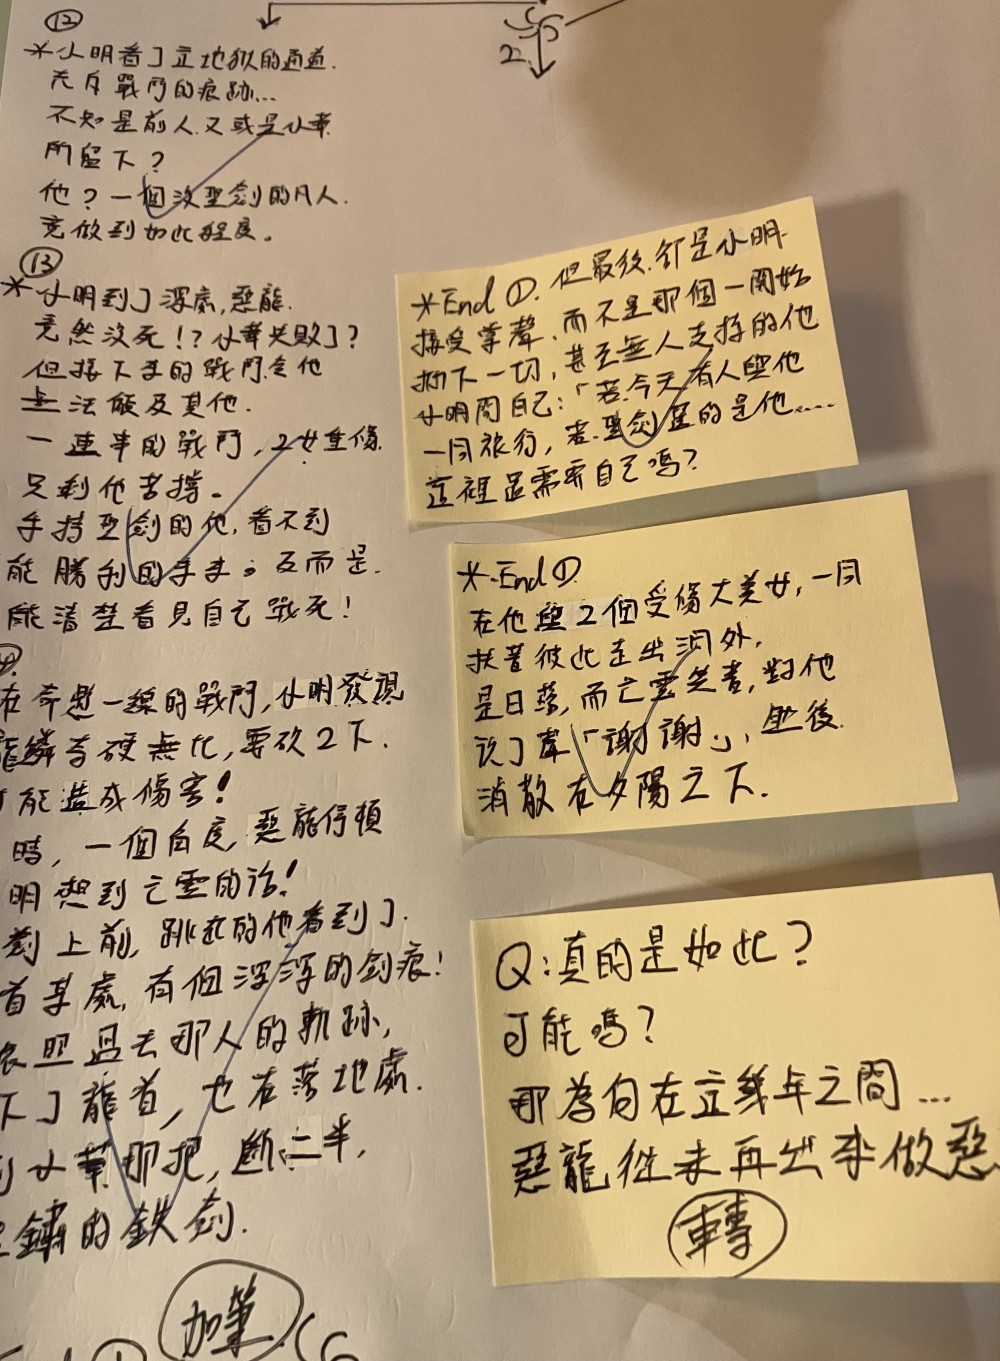 2.
⑫
*小明看了立地獄的通道.
充斥戰鬥的痕跡...
不知是前人.又或是小華
所留下?
他?一個沒聖劍的凡人.
竟做到如此程度。
⑬
*小明到了深處,惡龍.
竟然沒死!?小華失敗了?
但接下來的戰鬥,令他
無法顧及其他.
一連串的戰鬥,2女重傷.
只剩他苦撐。
手持聖劍的他,看不到
能勝利的未來。反而是.
能清楚看見自己戰死!
在奇想一線的戰鬥,小明發現
龍鱗奇硬無比,要砍2下.
能造成傷害!
時,一個角度,惡龍停頓
明想到亡靈的話!
衝上前,跳起的他看到了.
首某處,有個深深的劍痕!
依照過去那人的軌跡,
下了龍首,也在落地處.
到小華那把,斷二半,
鏽的鉄劍.
加筆
*End①.但最後.卻是小明.
接受掌聲,而不是那個一開始
拋下一切,甚至無人支持的他
小明問自己:「若今天有人與他
一同旅行,若.聖劍選的是他.....
這裡還需要自己嗎?
*.End①
在他與2個受傷大美女,一同
扶著彼此走出洞外,
是日落,而亡靈笑著,對他
說了聲「謝謝」,然後.
消散在夕陽之下.
Q:真的是如此?
可能嗎?
那為何在這幾年之間...
惡龍從未再出來做惡
轉